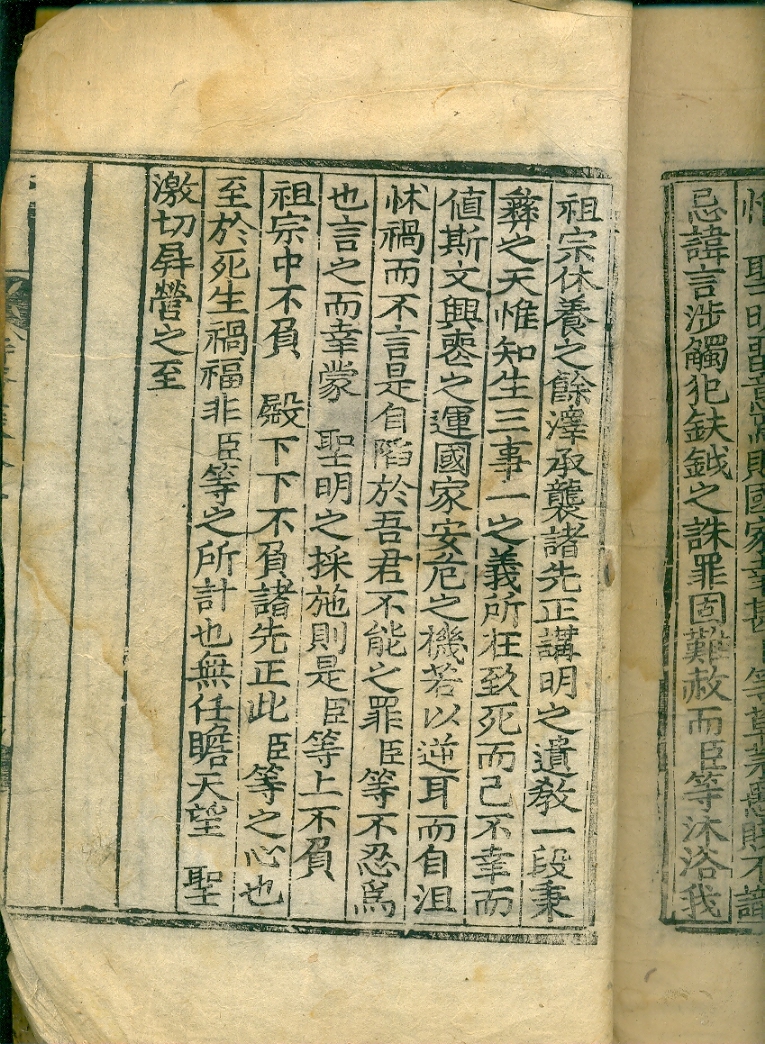 聖明留意焉則國家幸甚 等草茅愚賤不識
忌諱言涉觸犯鈇鉞之誅罪固難赦而臣等沐浴我
祖宗休養之餘澤承襲諸先正講明之遺敎一段秉
彝之天惟知生三事一之義所在致死而已不幸而
値斯文興喪之運國家安危之機若以逆耳而自沮
怵禍而不言是自陷於吾君不能之罪臣等不忍爲
也言之而幸蒙 聖明之採施則是臣等上不負
祖宗中不負 殿下下不負諸先正此臣等之心也
至於死生禍福非臣等之所計也無任瞻天望 聖
激切屛營之至